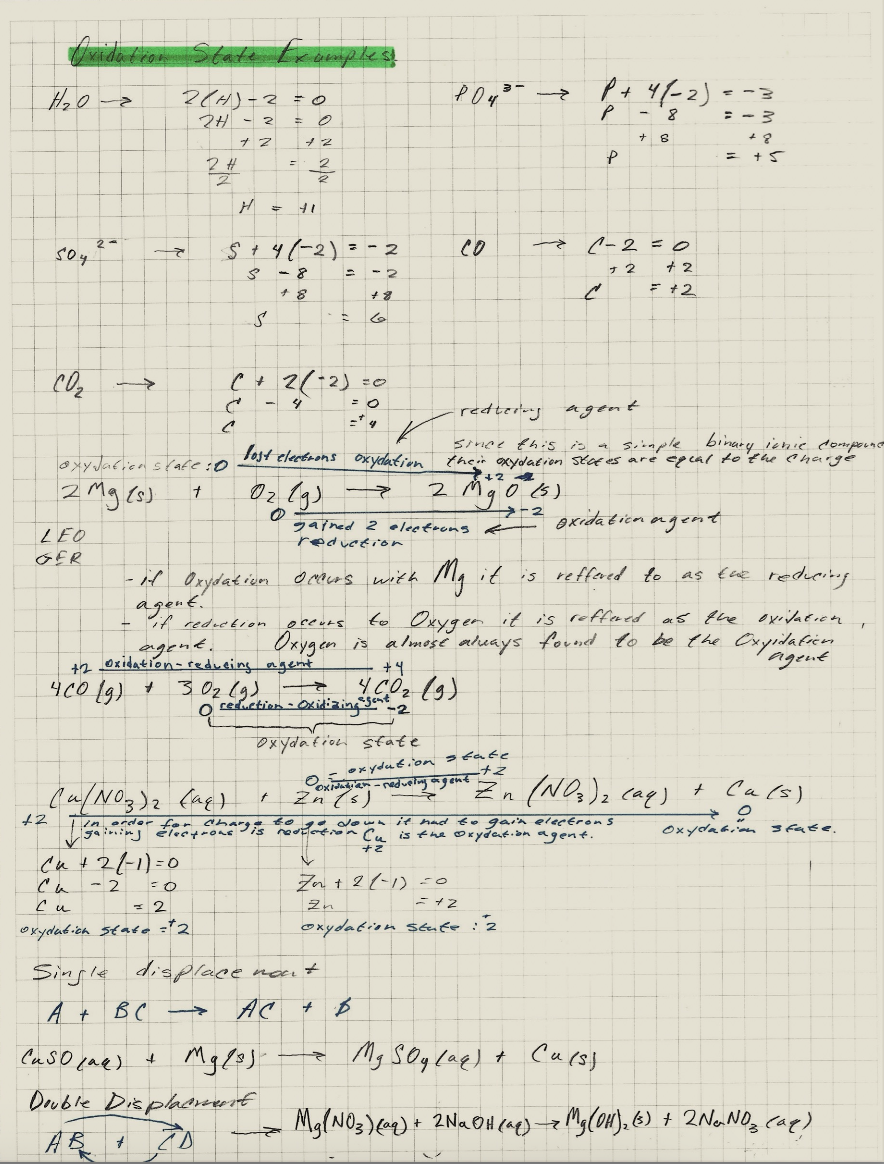 Oxidation State Examples
H₂O → 2(H) - 2 = 0
2H - 2 = 0
+2 +2
2H/2 = 2/2
H = +1
PO₄³⁻ → P + 4(-2) = -3
P - 8 = -3
+8 +8
P = +5
SO₄²⁻ → S + 4(-2) = -2
S - 8 = -2
+8 +8
S = 6
CO → C - 2 = 0
+2 +2
C = +2
CO₂ → C + 2(-2) = 0
C - 4 = 0
C = +4
reducing agent
since this is a simple binary ionic compound
their oxydation states are equal to the charge
oxydation state: 0 lost electrons oxydation +2
2Mg(s) + O₂(g) → 2MgO(s)
0 gained 2 electrons -2
reduction
oxidation agent
LEO
GER
- if Oxydation occurs with Mg it is reffered to as the reducing
agent.
- if reduction occurs to Oxygen it is reffered as the oxidation
agent. Oxygen is almost always found to be the Oxyidation
agent
+2 oxidation-reducing agent +4
4CO(g) + 3O₂(g) → 4CO₂(g)
0 reduction-oxidizing agent -2
oxydation state
0 = oxydation state +2
oxidation-reducing agent
Cu(NO₃)₂(aq) + Zn(s) → Zn(NO₃)₂(aq) + Cu(s)
+2 in order for charge to go down it had to gain electrons 0
gaining electrons is reduction Cu is the oxydation agent. oxydation state.
+2
Cu + 2(-1) = 0
Cu - 2 = 0
Cu = 2
oxydation state = +2
Zn + 2(-1) = 0
Zn = +2
oxydation state : +2
Single displacement
A + BC → AC + B
CuSO(aq) + Mg(s) → MgSO₄(aq) + Cu(s)
Double Displacment
AB + CD → Mg(NO₃)(aq) + 2NaOH(aq) → Mg(OH)₂(s) + 2NaNO₃(aq)